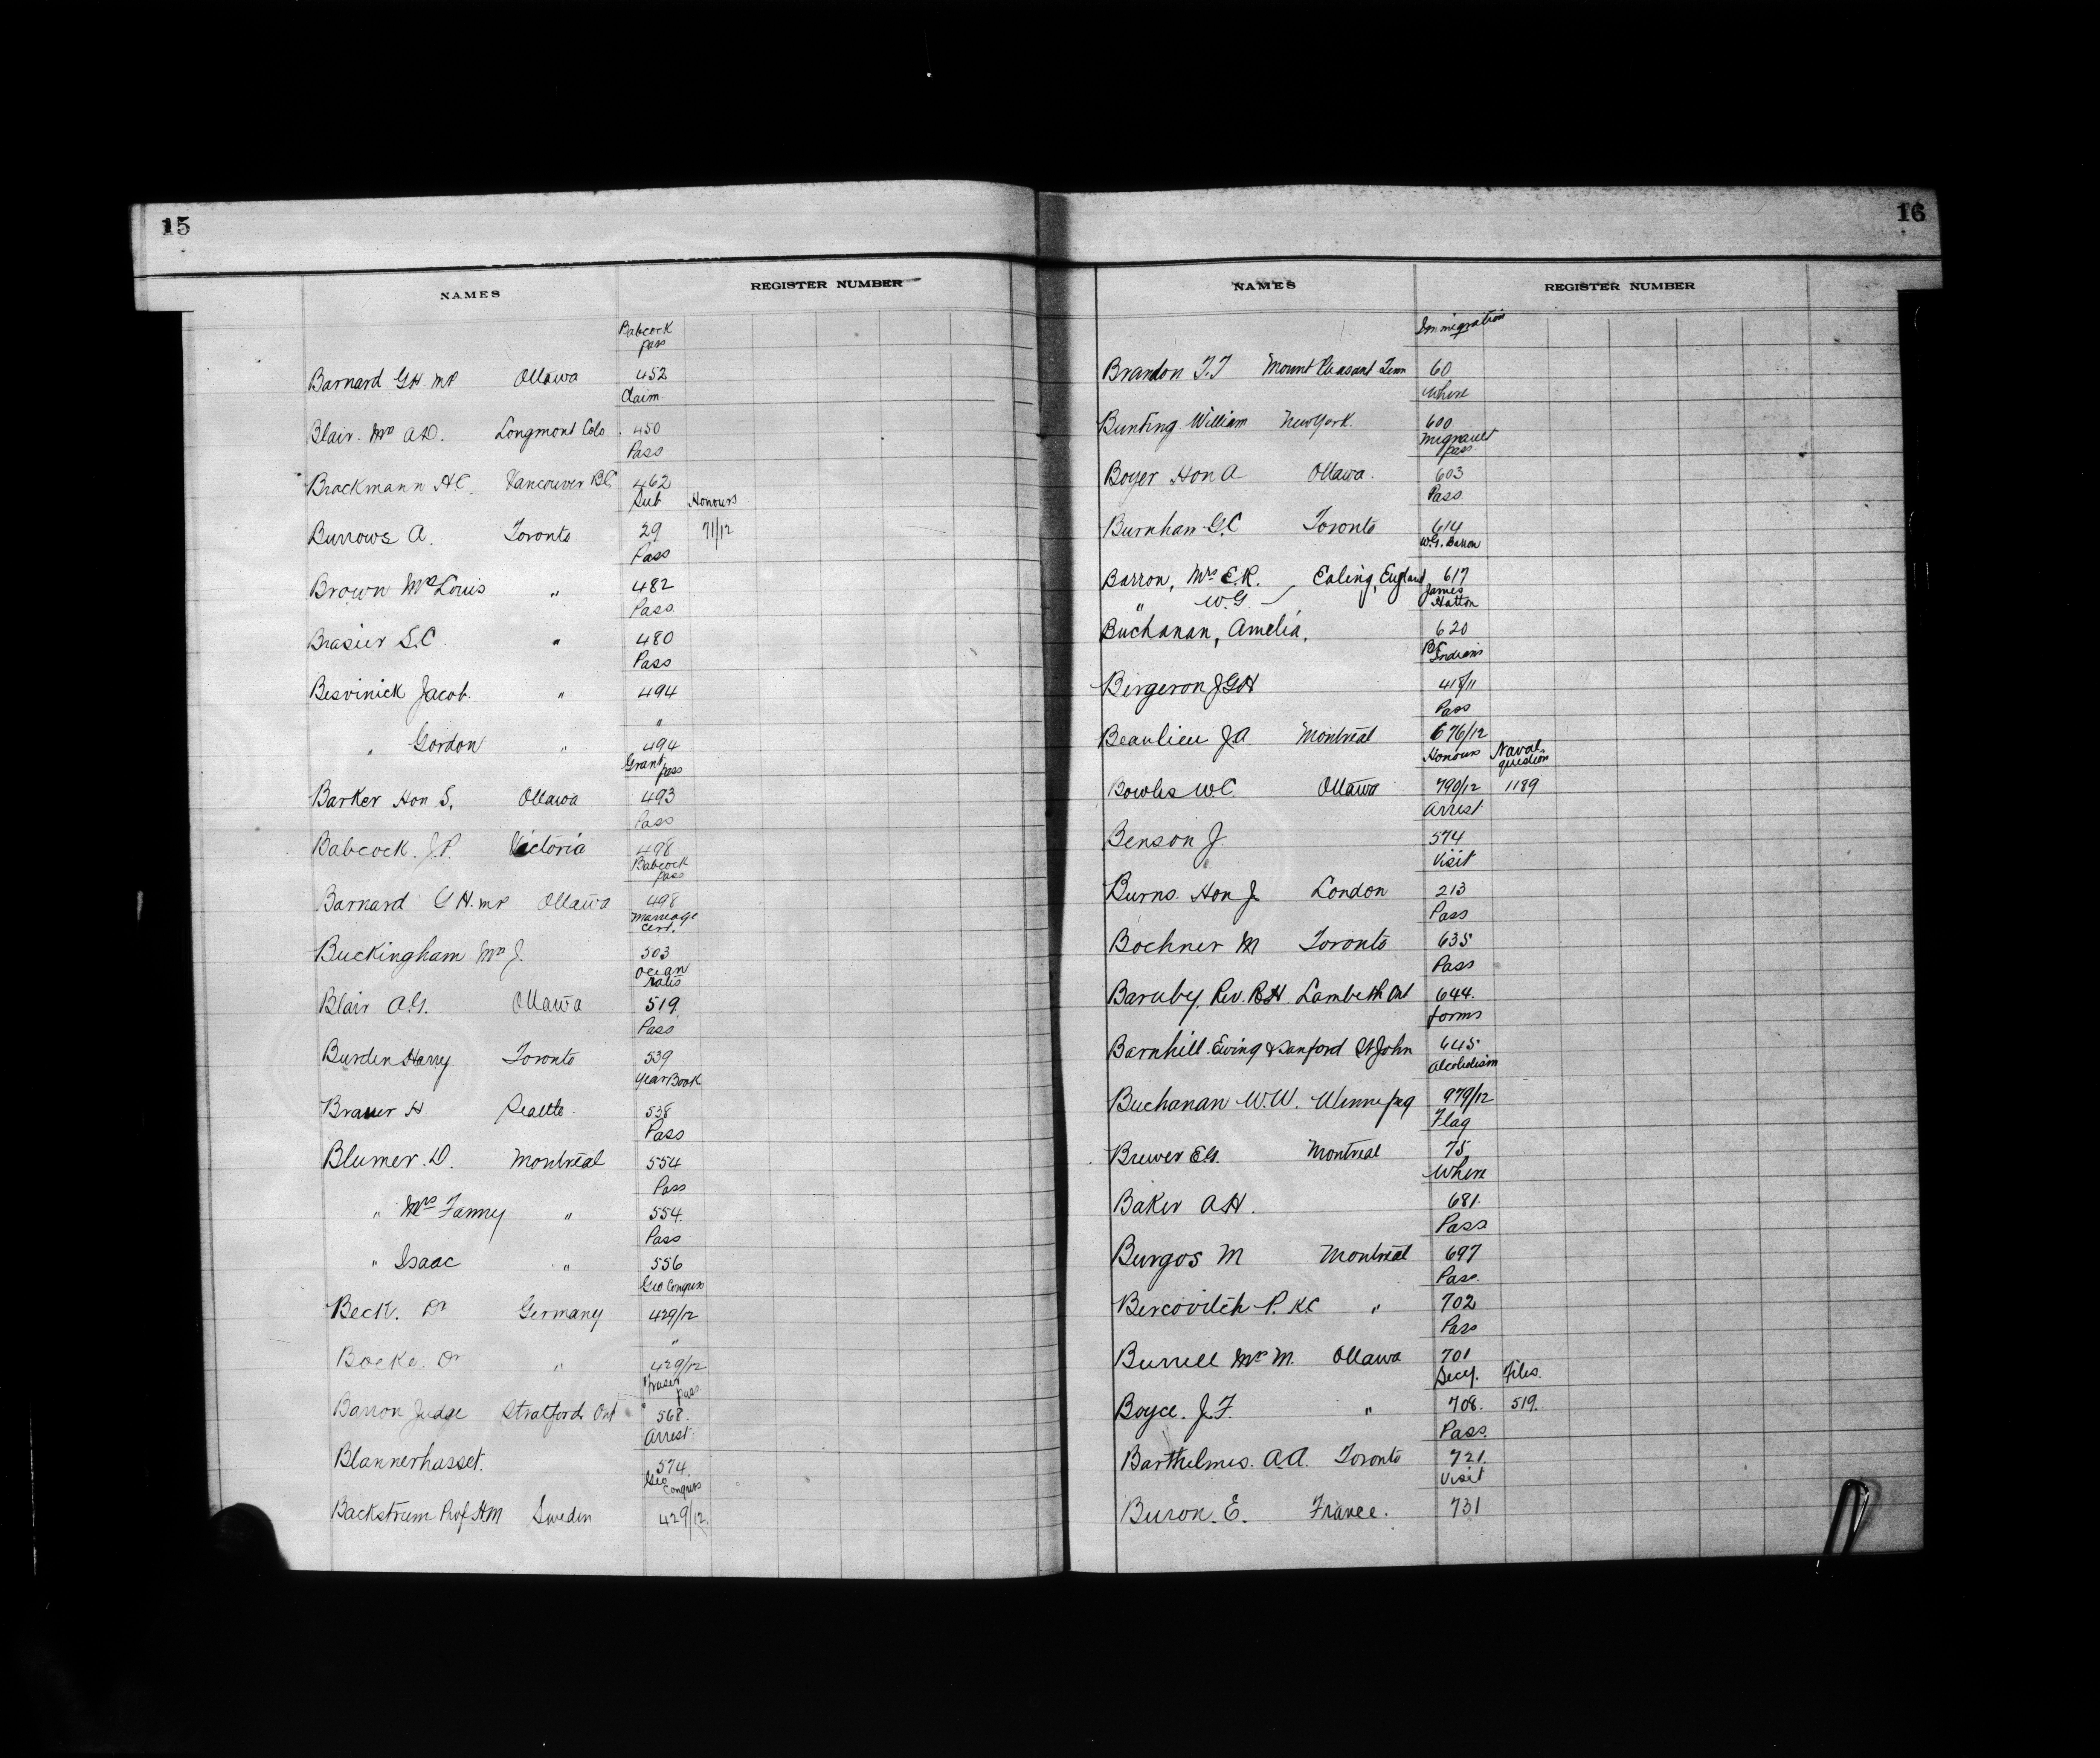 15
NAMES REGISTER NUMBER
Babcock
pass
Barnard GH. MP Ottawa 452
Claim
Blair. Mrs A.D. Longmont Colo. 450
Pass
Brockmann AC. Vancouver BC 462
Sub Honours
Burrows A. Toronto 29 71/12
Pass
Brown Mrs Louis " 482
Pass.
Brasier S.C. " 480
Pass
Besvinick Jacob. " 494
"
" Gordon " 494
Grant
pass
Barker Hon S. Ottawa 493
Pass
Babcock. J.P. Victoria 498
Babcock
pass
Barnard G H. MP Ottawa 498
Marriage
Cert.
Buckingham Mrs J. 503
Ocean
rates
Blair A.G. Ottawa 519.
Pass
Burden Harry Toronto 539
Year Book
Brauer H. Seattle. 538
Pass
Blumer. D. Montreal 554
Pass
" Mrs Fanny " 554.
Pass
" Isaac " 556
Geo Congress
Beck. Dr Germany 429/12
"
Boeke. Dr " 429/12
Fraser
pass.
Barron Judge Stratford Ont 568.
Arrest
Blannerhasset. 574.
Geo
Congress
Backstrum Prof HM Sweden 429/12.
16
NAMES REGISTER NUMBER
Immigration
Brandon T.J Mount Pleasant Tenn 60
Where
Bunting William New York. 600
Mignault
pass.
Boyer Hon A Ottawa. 603
Pass.
Burnham G.C Toronto 614
W.G. Barron
Barron, Mrs E.R. Ealing, England 617
" W.G.
James
Hatton
Buchanan, Amelia, 620
BC
Indians
Bergeron J G H 418/11
Pass
Beaulieu J.A. Montreal 676/12
Honours Naval
question
Bowles W.C. Ottawa 790/12 1189
Arrest
Benson J. 574
Visit
Burns. Hon J. London 213
Pass
Bochner M Toronto 635
Pass
Barnby, Rev. R.H. Lambeth Ont 644.
forms
Barnhill. Ewing & Sanford St John 645
Alcoholism
Buchanan W.W. Winnipeg 979/12
Flag
Brewer E.G. Montreal 75
Where
Baker A.H. 681.
Pass
Burgos M Montreal 697
Pass.
Bercovitch P. KC " 702
Pass
Burrell Mr M. Ottawa 701
Secy. Files.
Boyce. J.F. " 708. 519.
Pass.
Barthelmes. A.A. Toronto 721.
Visit
Buron. E. France. 731